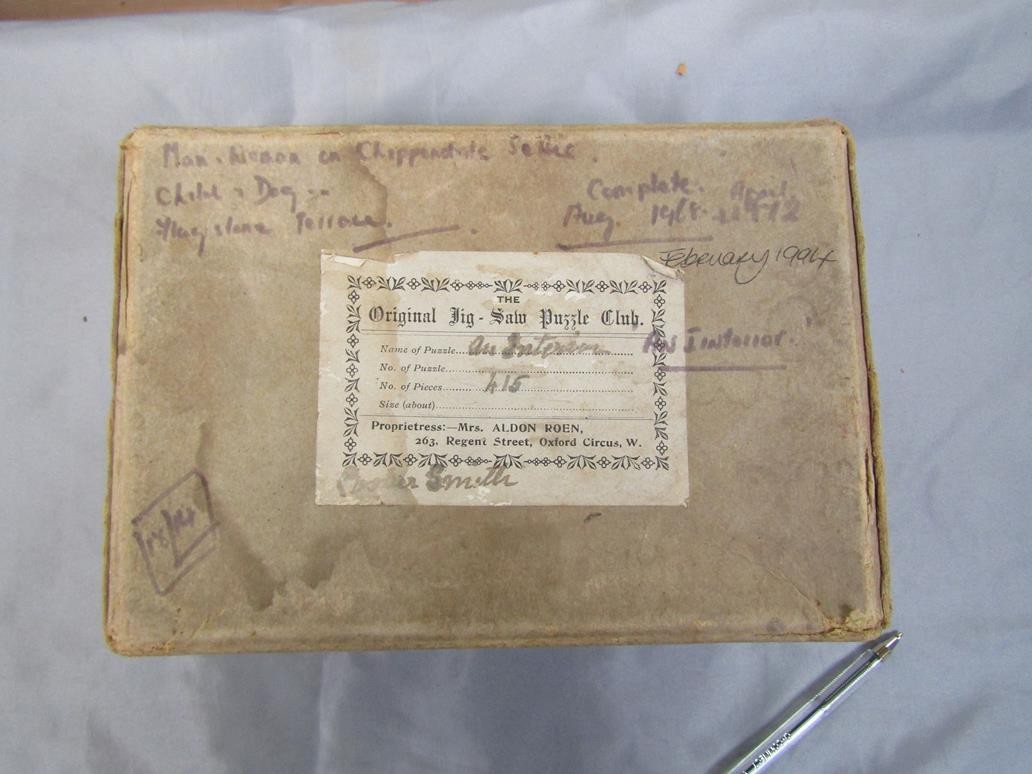 Man. Woman on Chippendale Settee.
Child & Dog --
Flagstone Terrace.
Complete. April
Aug. 1968. 1972
February 1994
THE
Original Jig-Saw Puzzle Club.
Name of Puzzle....An Interior
No. of Puzzle
No. of Pieces....415
Size (about)
Proprietress:—Mrs. ALDON ROEN,
263, Regent Street, Oxford Circus, W.
Smith
Interior."